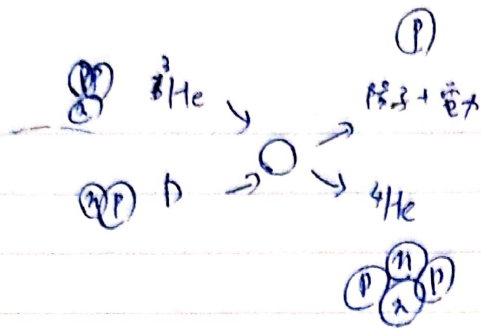 P
P P
n
³He
n P
D
⁴He
n
P P
n